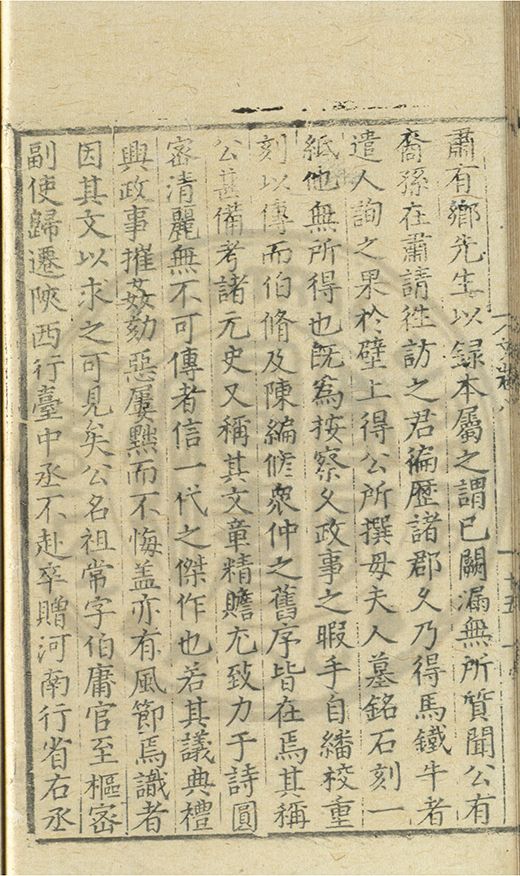 肅有鄉先生以録本屬之謂已闕漏無所質聞公有
裔孫在肅請徃訪之君徧歷諸郡久乃得馬鐵牛者
遣人詢之果於壁上得公所撰毋夫人墓銘石刻一
紙他無所得也旣爲按察夂政事之暇手自繙校重
刻以傳而伯脩及陳編脩衆仲之舊序皆在焉其稱
公甚備考諸元史又稱其文章精贍尤致力于詩圓
密清麗無不可傳者信一代之傑作也若其議典禮
興政事摧姦劾惡屢黜而不悔盖亦有風節焉識者
因其文以求之可見矣公名祖常字伯庸官至樞密
副使歸遷陜西行臺中丞不赴卒贈河南行省右丞